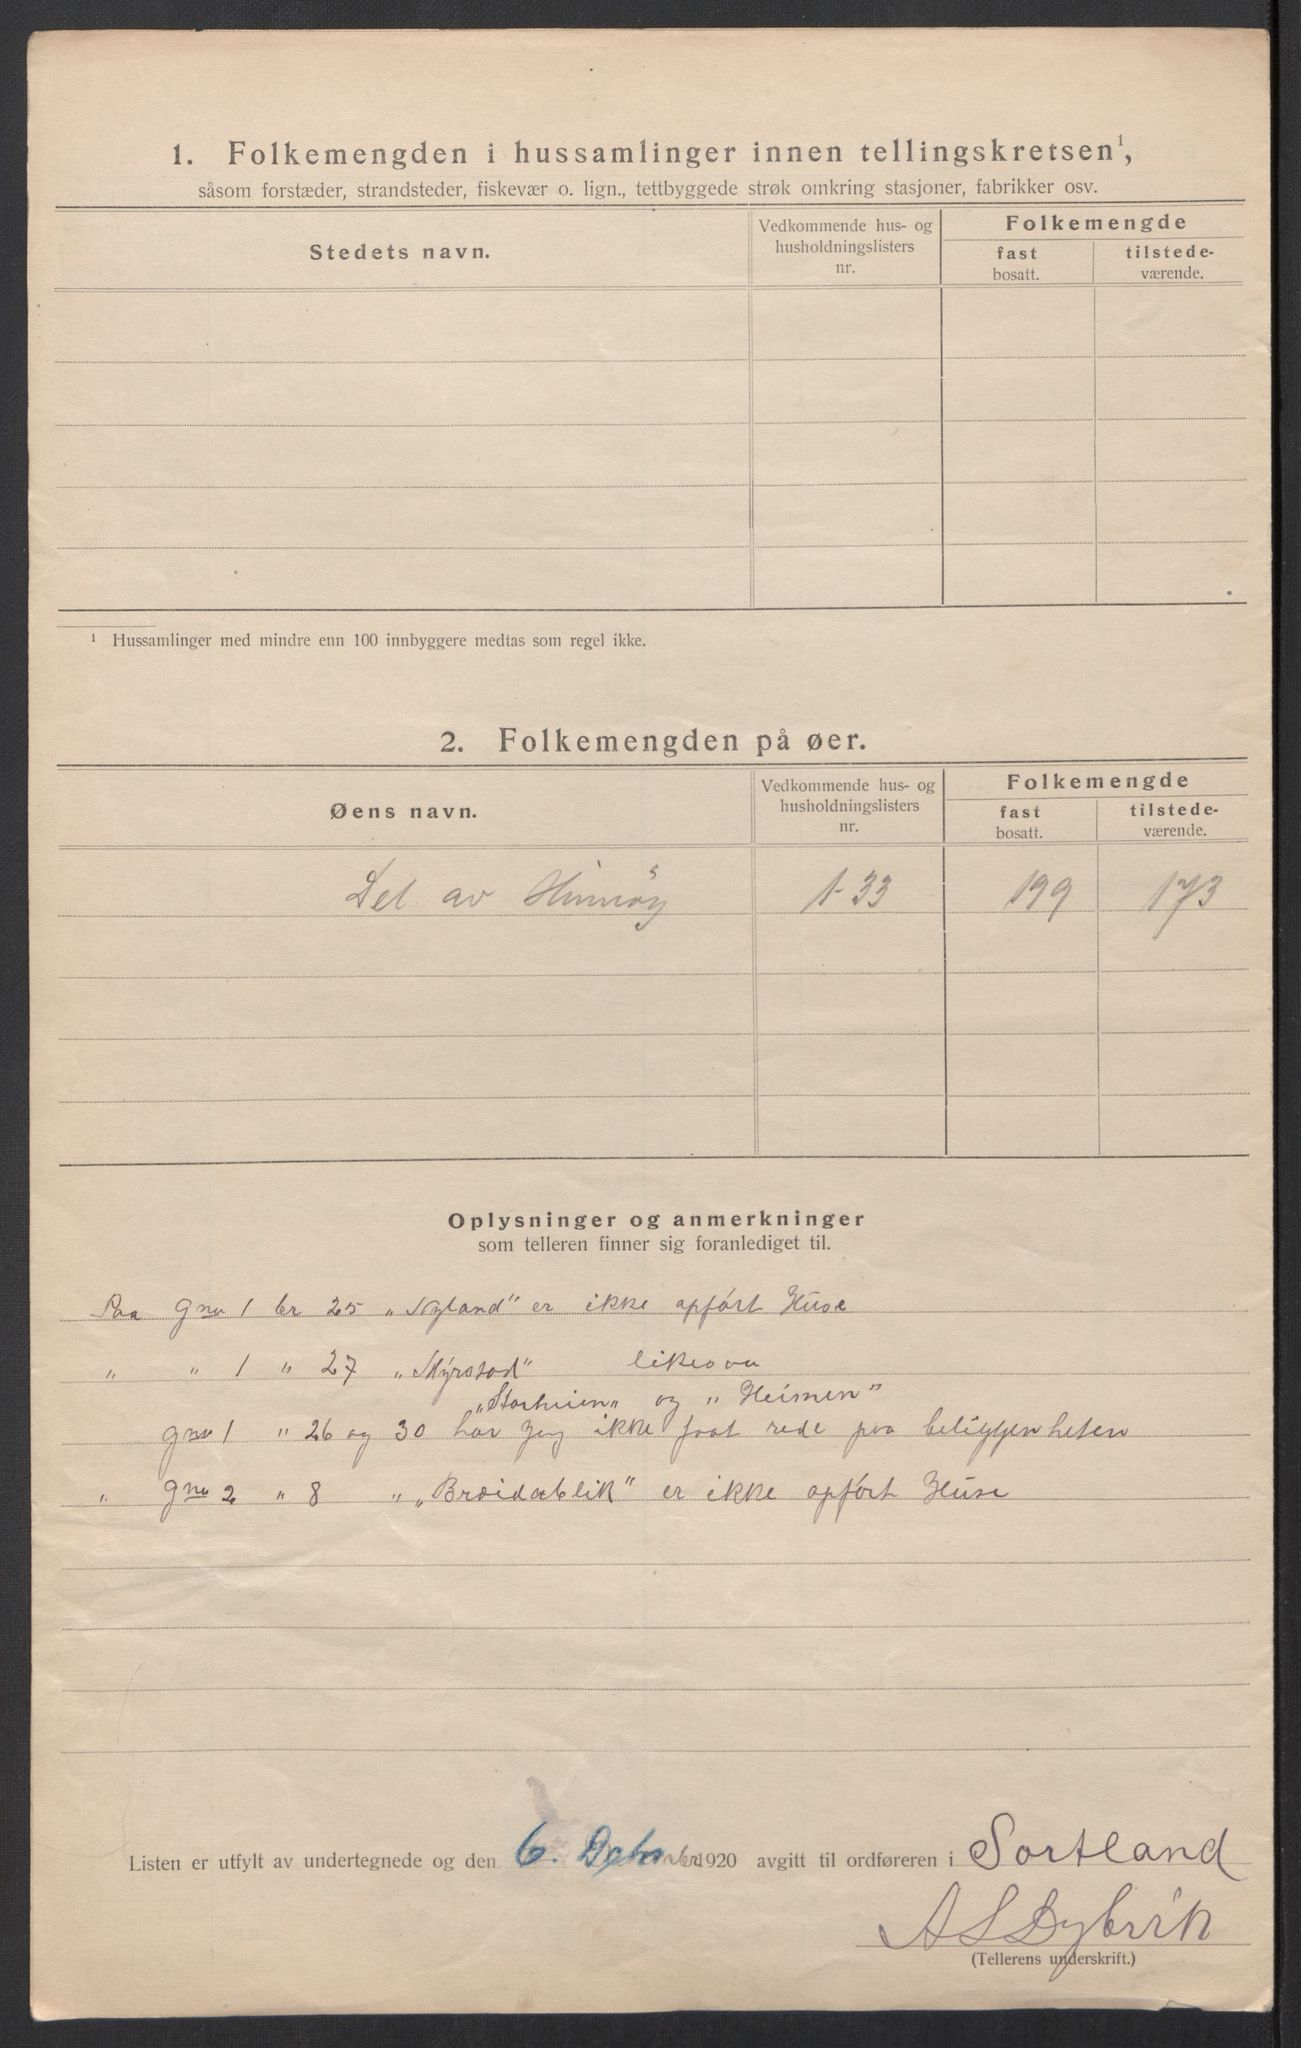 1. Folkemengden i hussamlinger innen tellingskretsen¹,
såsom forstæder, strandsteder, fiskevær o. lign., tettbyggede strøk omkring stasjoner, fabrikker osv.
Stedets navn.
Vedkommende hus- og husholdningslisters nr.
Folkemengde
fast bosatt.
tilstede-værende.
¹ Hussamlinger med mindre enn 100 innbyggere medtas som regel ikke.
2. Folkemengden på øer.
Øens navn.
Vedkommende hus- og husholdningslisters nr.
Folkemengde
fast bosatt.
tilstede-værende.
Del av Hinnøy 1-33 199 173
Oplysninger og anmerkninger
som telleren finner sig foranlediget til.
Paa Gno 1 br 25 "Nyland" er ikke opført Huse
" " 1 " 27 "Myrstad" likesaa
og "Heimen"
gno 1 " 26 og 30 har jeg ikke faat rede paa beliggenheten
" gno 2 " 8 " "Breidablik" er ikke opført Huse
Listen er utfylt av undertegnede og den 6. 1920 avgitt til ordføreren i Sortland
A S Dybvik
(Tellerens underskrift.)